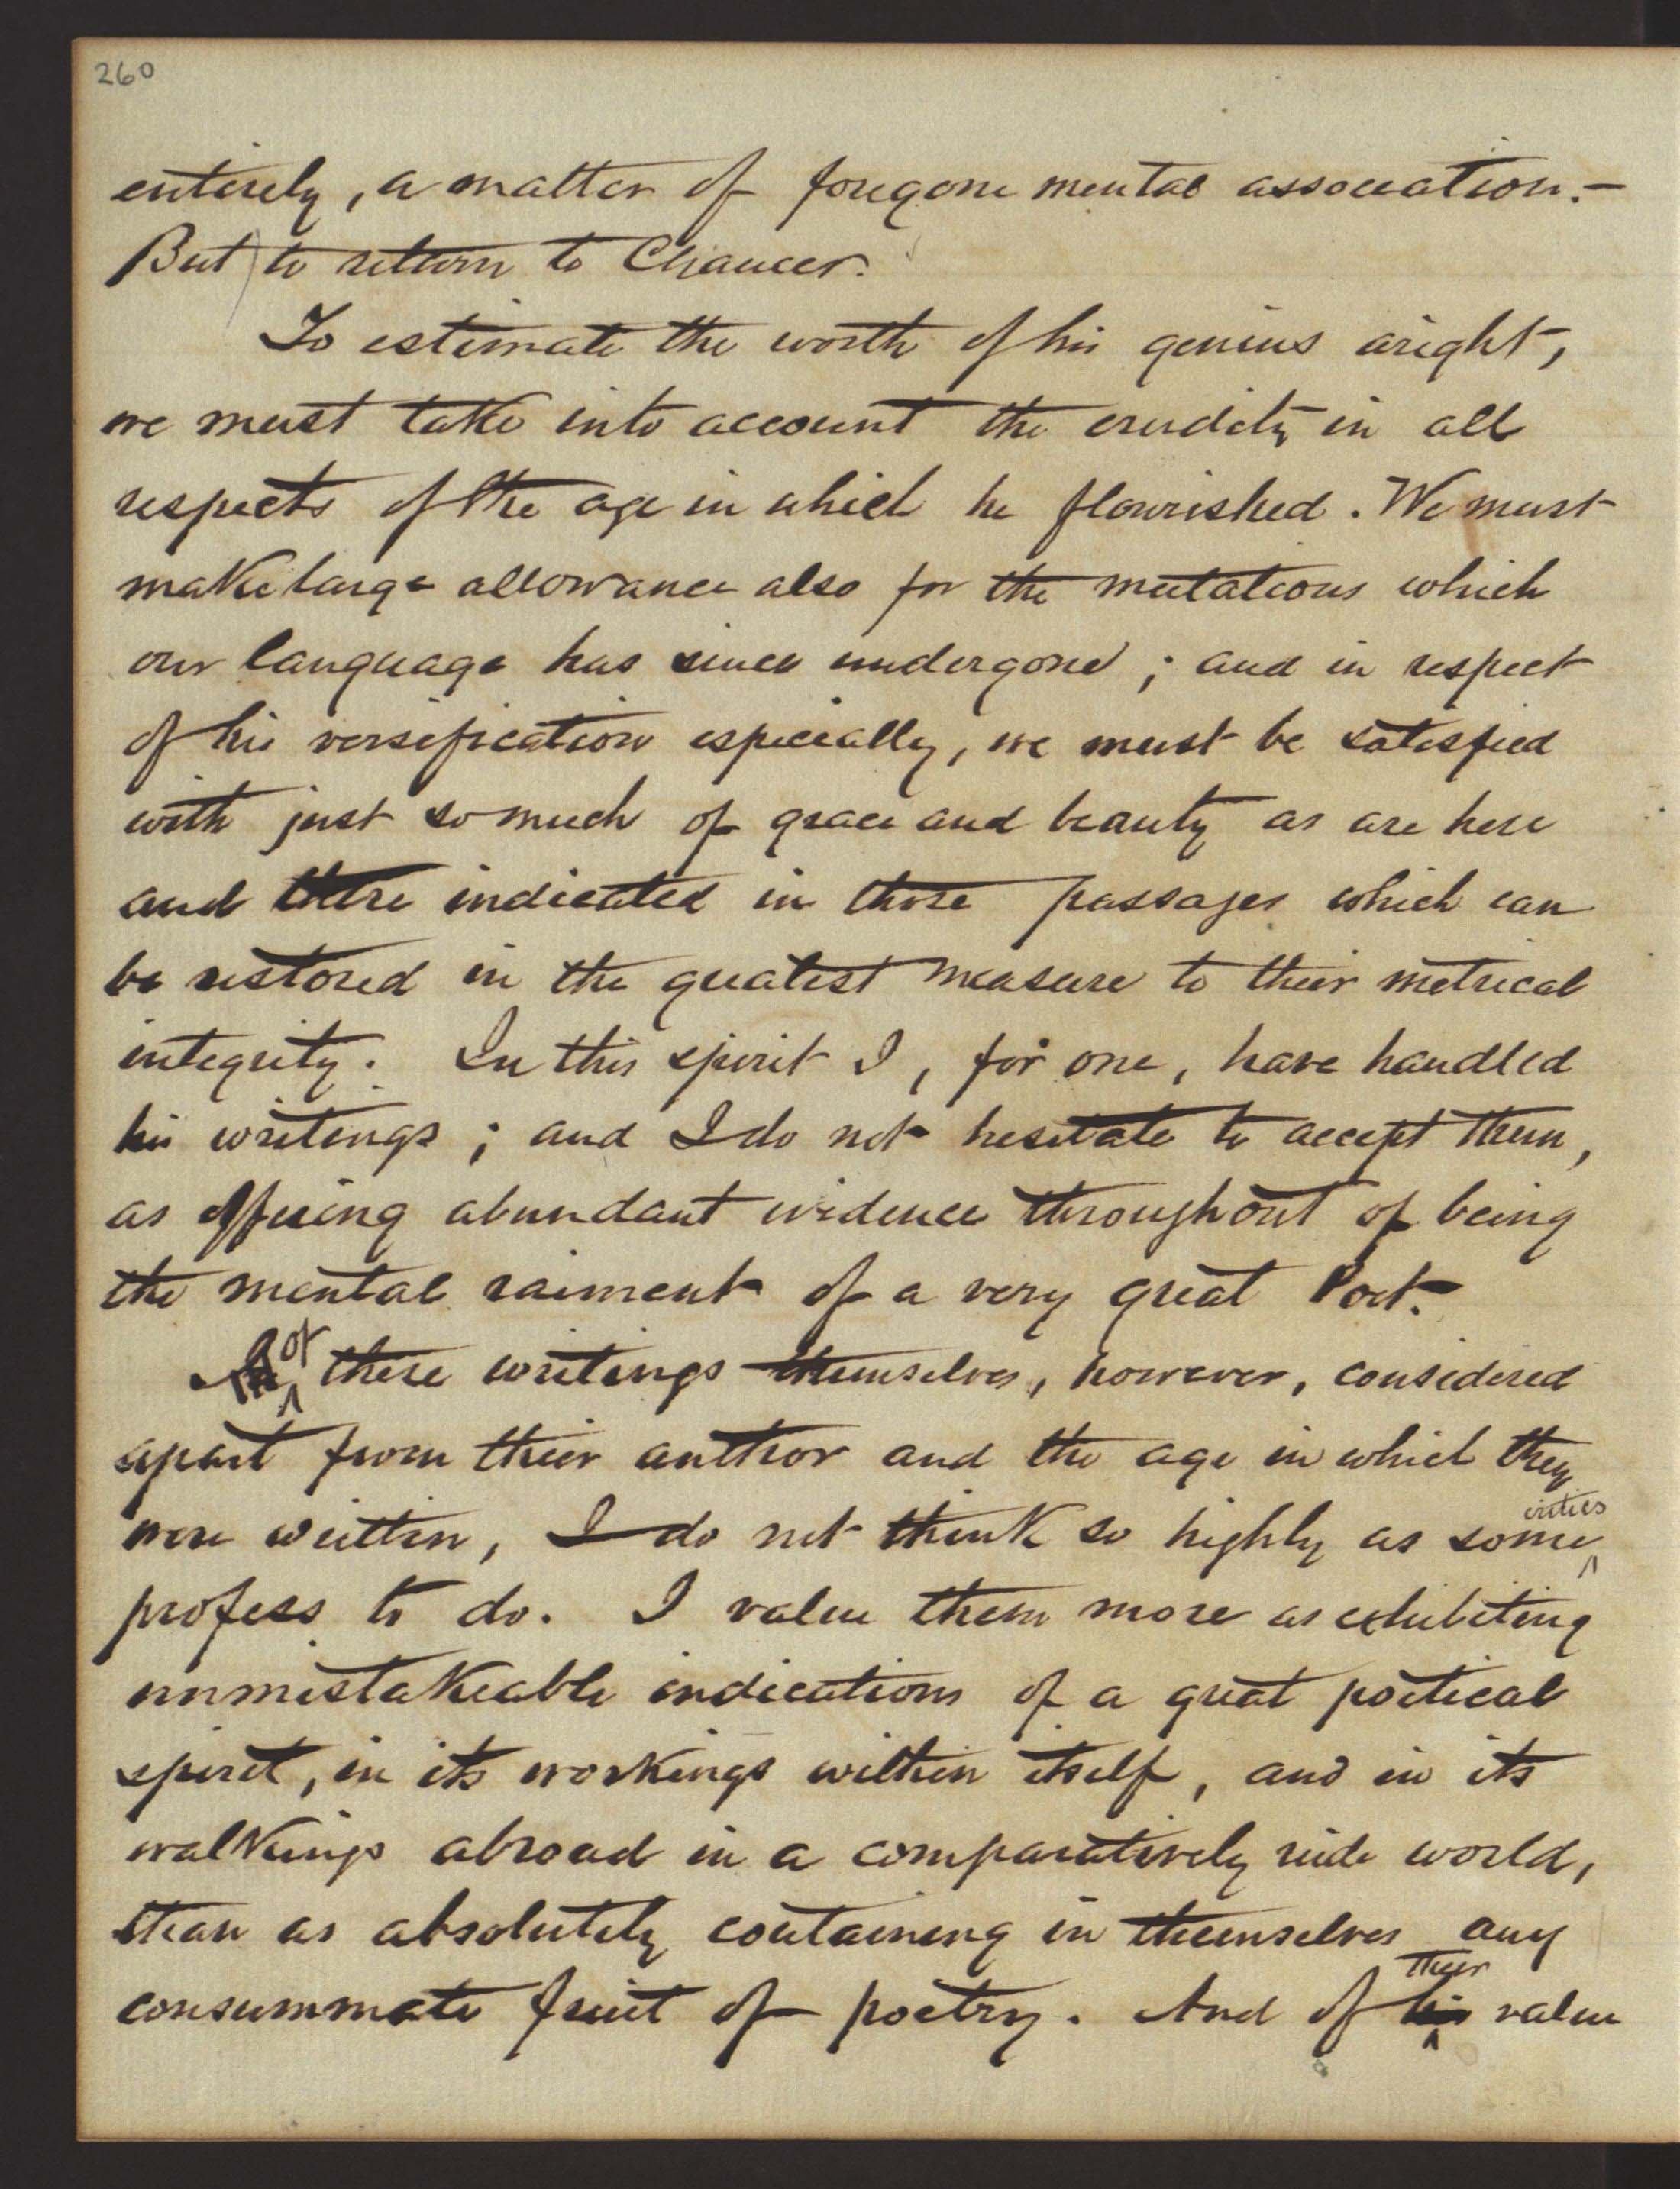 260
entirely, a matter of foregone mental association. —
But to return to Chaucer.
To estimate the worth of his genius aright,
we must take into account the crudity in all
respects of the age in which he flourished. We must
make large allowance also for the mutations which
our language has since undergone; and in respect
of his versification especially, we must be satisfied
with just so much of grace and beauty as are here
and there indicated in those passages which can
be restored in the greatest measure to their metrical
integrity. In this spirit I, for one, have handled
his writings; and I do not hesitate to accept them,
as offering abundant evidence throughout of being
the mental raiment of a very great Poet.
of
these writings themselves, however, considered
apart from their author and the age in which they
critics
were written, I do not think so highly as some
profess to do. I value them more as exhibiting
unmistakeable indications of a great poetical
spirit, in its workings within itself, and in its
walkings abroad in a comparatively rude world,
than as absolutely containing in themselves any
their
consummate fruit of poetry. And of his value